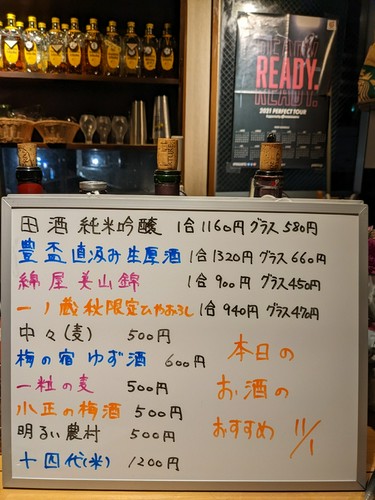 READY.
READY.
READY.
2021 PERFECT TOUR
田酒 純米吟醸 1合1160円 グラス580円
豊盃 直汲み生原酒 1合1320円 グラス660円
綿屋 美山錦 1合900円 グラス450円
一ノ蔵 秋限定ひやおろし 1合940円 グラス470円
中々(麦) 500円
梅の宿 ゆず酒 600円
一粒の麦 500円
小正の梅酒 500円
明るい農村 500円
十四代(米) 1200円
本日の
お酒の
おすすめ 11/1